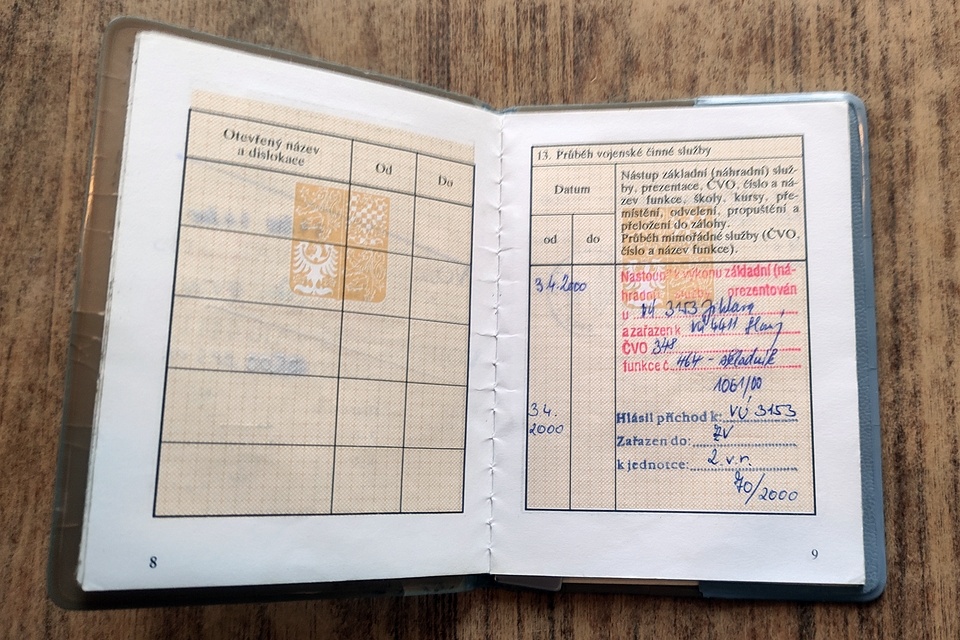 Otevřený název
a dislokace
Od
Do
8
13. Průběh vojenské činné služby
Datum
od
do
Nástup základní (náhradní) služ-
by, prezentace, ČVO, číslo a ná-
zev funkce, školy, kursy, pře-
místění, odvelení, propuštění a
přeložení do zálohy.
Průběh mimořádné služby (ČVO,
číslo a název funkce).
3.4.2000
Nastoupil k výkonu základní (ná-
hradní) služby prezentován
u VÚ 3153 Jihlava
a zařazen k VÚ 4411 Slaný
ČVO 348
funkce č. 464 - skladník
1061/00
3.4.
2000
Hlásil příchod k: VÚ 3153
Zařazen do: ZV
k jednotce: 2. v.r.
70/2000
9